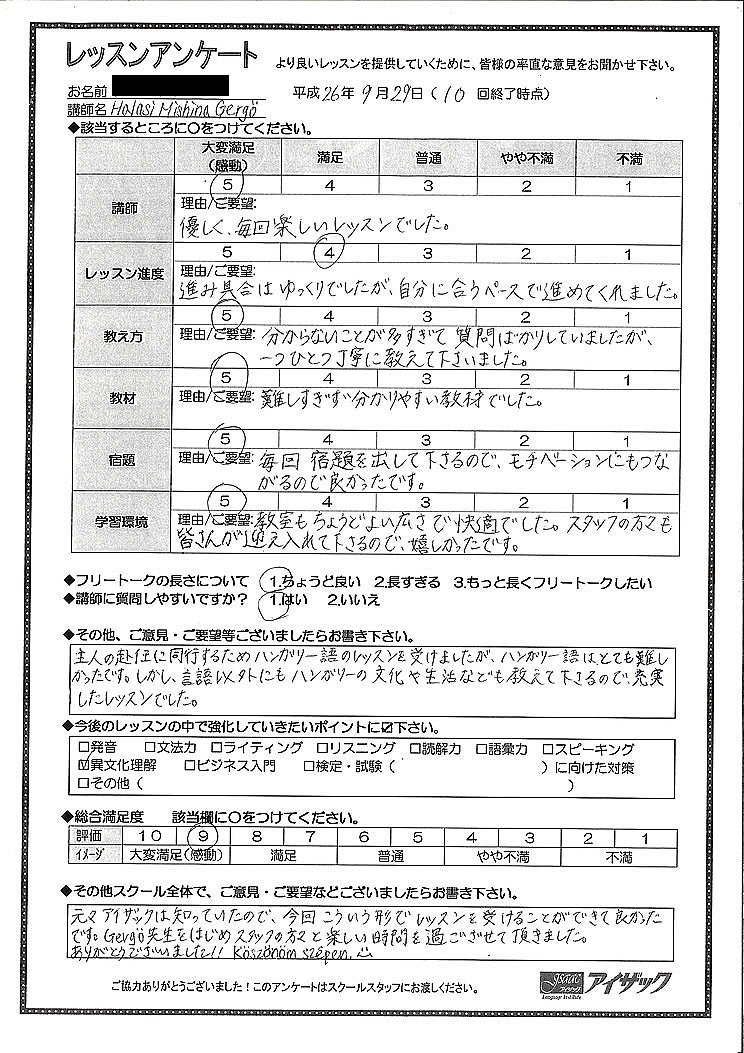 レッスンアンケート
より良いレッスンを提供していくために、皆様の率直な意見をお聞かせ下さい。
お名前
平成26年 9月29日(10 回終了時点)
講師名 Halasi Mishina Gergö
◆該当するところに○をつけてください。
大変満足(感動) 満足 普通 やや不満 不満
講師
5 4 3 2 1
理由/ご要望:
優しく、毎回楽しいレッスンでした。
レッスン進度
5 4 3 2 1
理由/ご要望:
進み具合はゆっくりでしたが、自分に合うペースで進めてくれました。
教え方
5 4 3 2 1
理由/ご要望: 分からないことが多すぎて質問ばかりしていましたが、
一つひとつ丁寧に教えて下さいました。
教材
5 4 3 2 1
理由/ご要望: 難しすぎず分かりやすい教材でした。
宿題
5 4 3 2 1
理由/ご要望: 毎回 宿題を出して下さるので、モチベーションにもつな
がるので良かったです。
学習環境
5 4 3 2 1
理由/ご要望: 教室もちょうどよい広さで快適でした。スタッフの方々も
皆さんが迎え入れて下さるので、嬉しかったです。
◆フリートークの長さについて 1.ちょうど良い 2.長すぎる 3.もっと長くフリートークしたい
◆講師に質問しやすいですか? 1.はい 2.いいえ
◆その他、ご意見・ご要望等ございましたらお書き下さい。
主人の赴任に同行するためハンガリー語のレッスンを受けましたが、ハンガリー語はとても難し
かったです。しかし、言語以外にもハンガリーの文化や生活なども教えて下さるので、充実
したレッスンでした。
◆今後のレッスンの中で強化していきたいポイントに☑下さい。
□発音 □文法力 □ライティング □リスニング □読解力 □語彙力 □スピーキング
☑異文化理解 □ビジネス入門 □検定・試験( )に向けた対策
□その他( )
◆総合満足度 該当欄に○をつけてください。
評価 10 9 8 7 6 5 4 3 2 1
イメージ 大変満足(感動) 満足 普通 やや不満 不満
◆その他スクール全体で、ご意見・ご要望などございましたらお書き下さい。
元々アイザックは知っていたので、今回こういう形でレッスンを受けることができて良かった
です。Gergö先生をはじめスタッフの方々と楽しい時間を過ごさせて頂きました。
ありがとうございました!! Köszönöm szépen.
ご協力ありがとうございました!このアンケートはスクールスタッフにお渡しください。
Isaac アイザック Language Institute アイザック